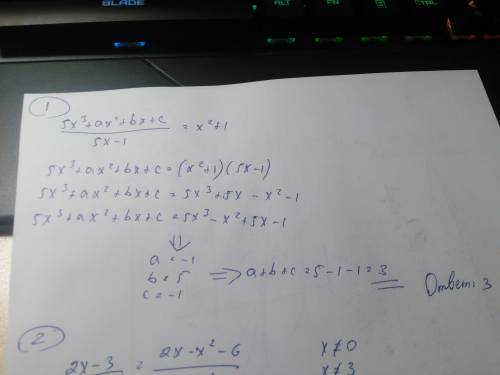 BLADE
ALT FN CTRL
1
5x³+ax²+bx+c / 5x-1 = x²+1
5x³+ax²+bx+c=(x²+1)(5x-1)
5x³+ax²+bx+c=5x³+5x-x²-1
5x³+ax²+bx+c=5x³-x²+5x-1
⇓
a=-1
b=5 ⇒ a+b+c=5-1-1=3
c=-1
Ответ: 3
2
2x-3 = 2x-x²-6 x≠0
x≠3